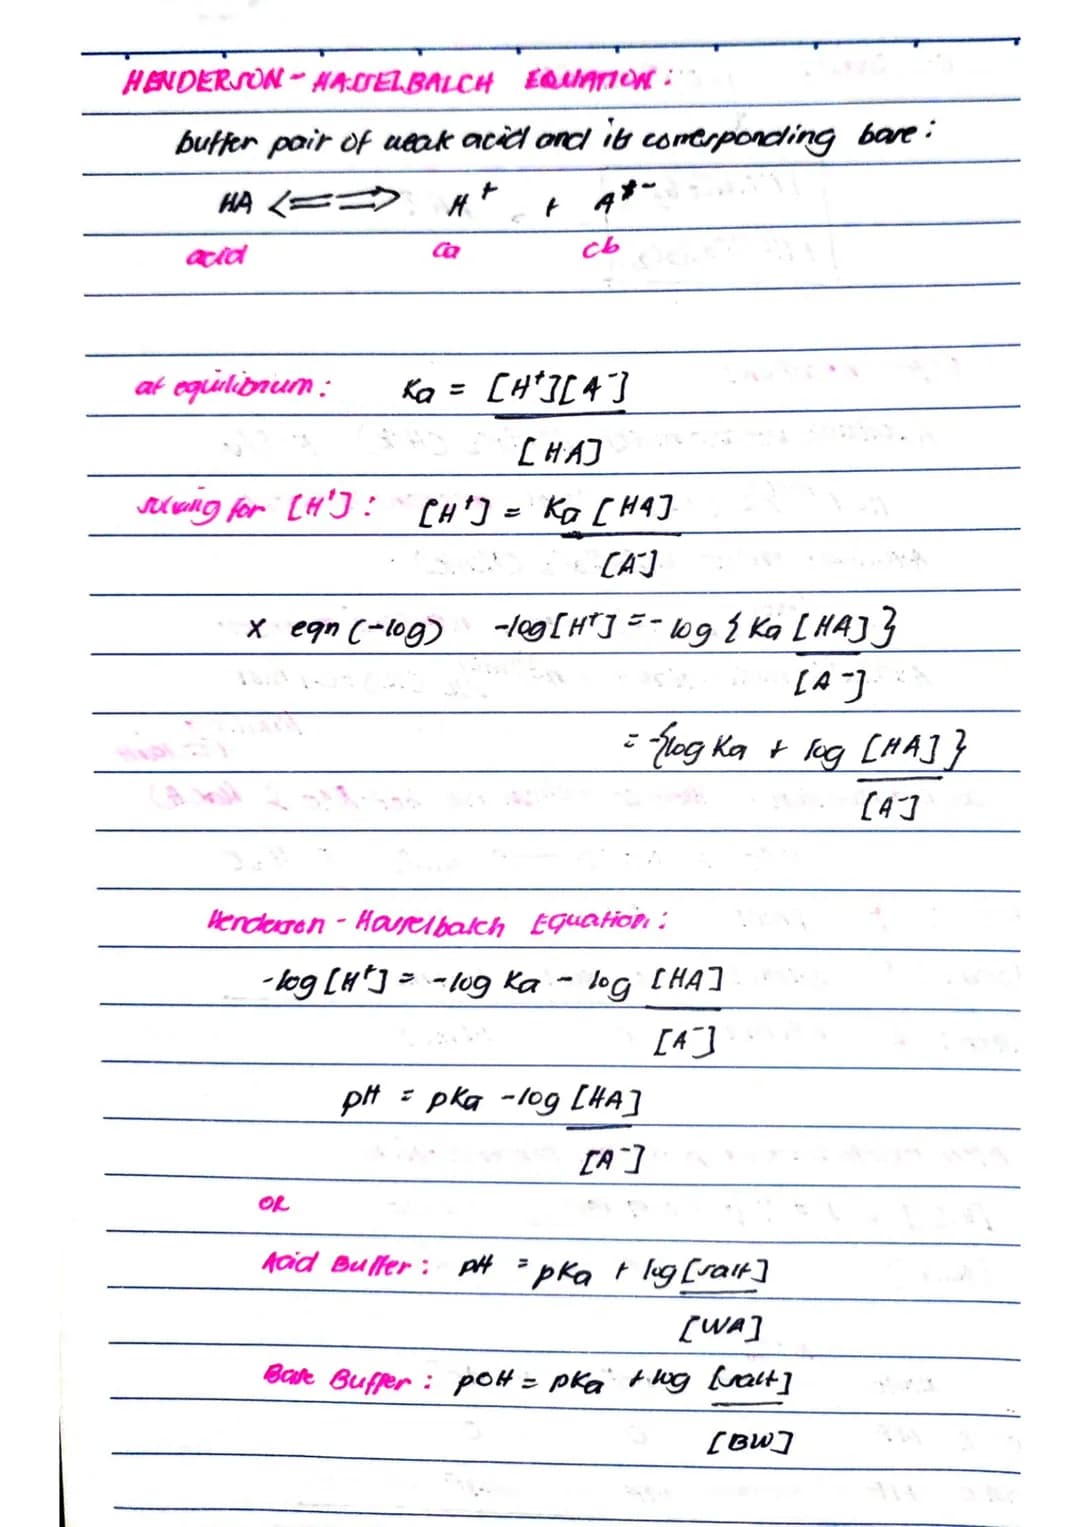 HENDERSON - HASSELBALCH EQUATION :
buffer pair of weak acid and its corresponding base :
HA <==> H⁺ + A⁻
acid ca cb
at equilibrium : Ka = [H⁺][A⁻]
[HA]
solving for [H⁺] : [H⁺] = Ka [HA]
[A⁻]
x eqn (-log) -log[H⁺] = - log { Ka [HA] }
[A⁻]
= -{log Ka + log [HA] }
[A⁻]
Henderson - Hasselbalch Equation :
-log [H⁺] = -log Ka - log [HA]
[A⁻]
pH = pKa -log [HA]
[A⁻]
OR
Acid Buffer : pH = pKa + log [salt]
[WA]
Base Buffer : pOH = pKa + log [salt]
[BW]